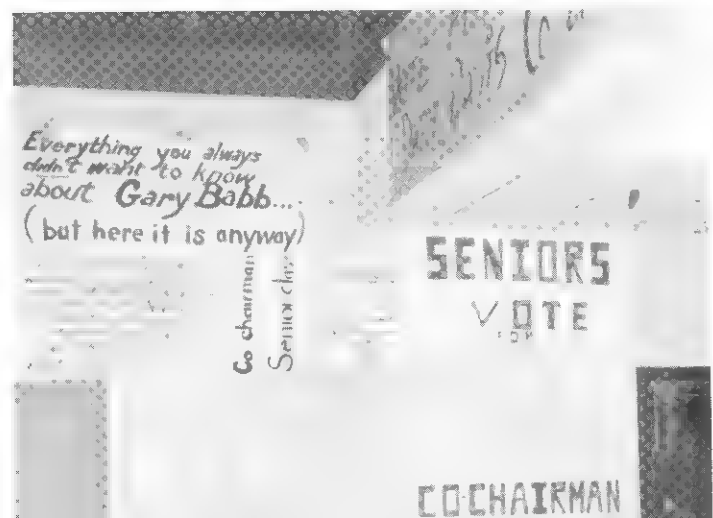 Everything you always
didn't want to know
about Gary Babb...
(but here it is anyway)
Co chairman
Senior class
SENIORS
VOTE
FOR
CO-CHAIRMAN